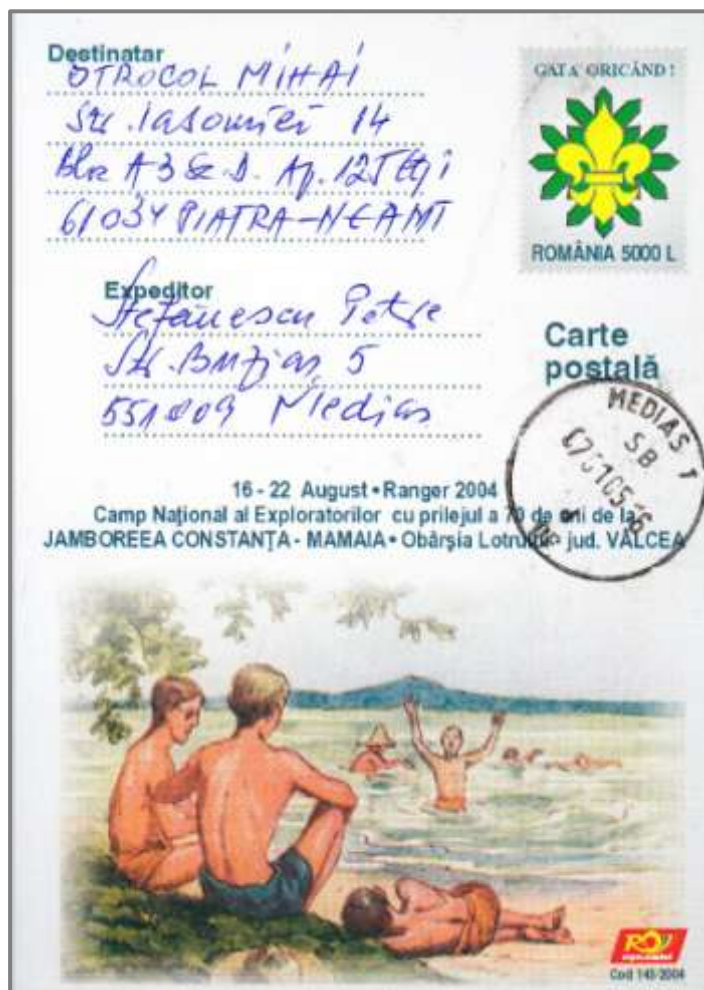 Destinatar
OTROCOL MIHAI
Str. Iasomiei 14
A3 Ap. 125
61034 PIATRA-NEAMT
GATA ORICÂND !
ROMÂNIA 5000 L
Expeditor
Ștefănescu Petre
Str. Buziaș 5
Mediaș
Carte
poștală
MEDIAS 1
SB
16 - 22 August • Ranger 2004
Camp Național al Exploratorilor cu prilejul a 70 de ani de la
JAMBOREEA CONSTANȚA - MAMAIA • Obârșia Lotrului jud. VÂLCEA
Cod 145/2004